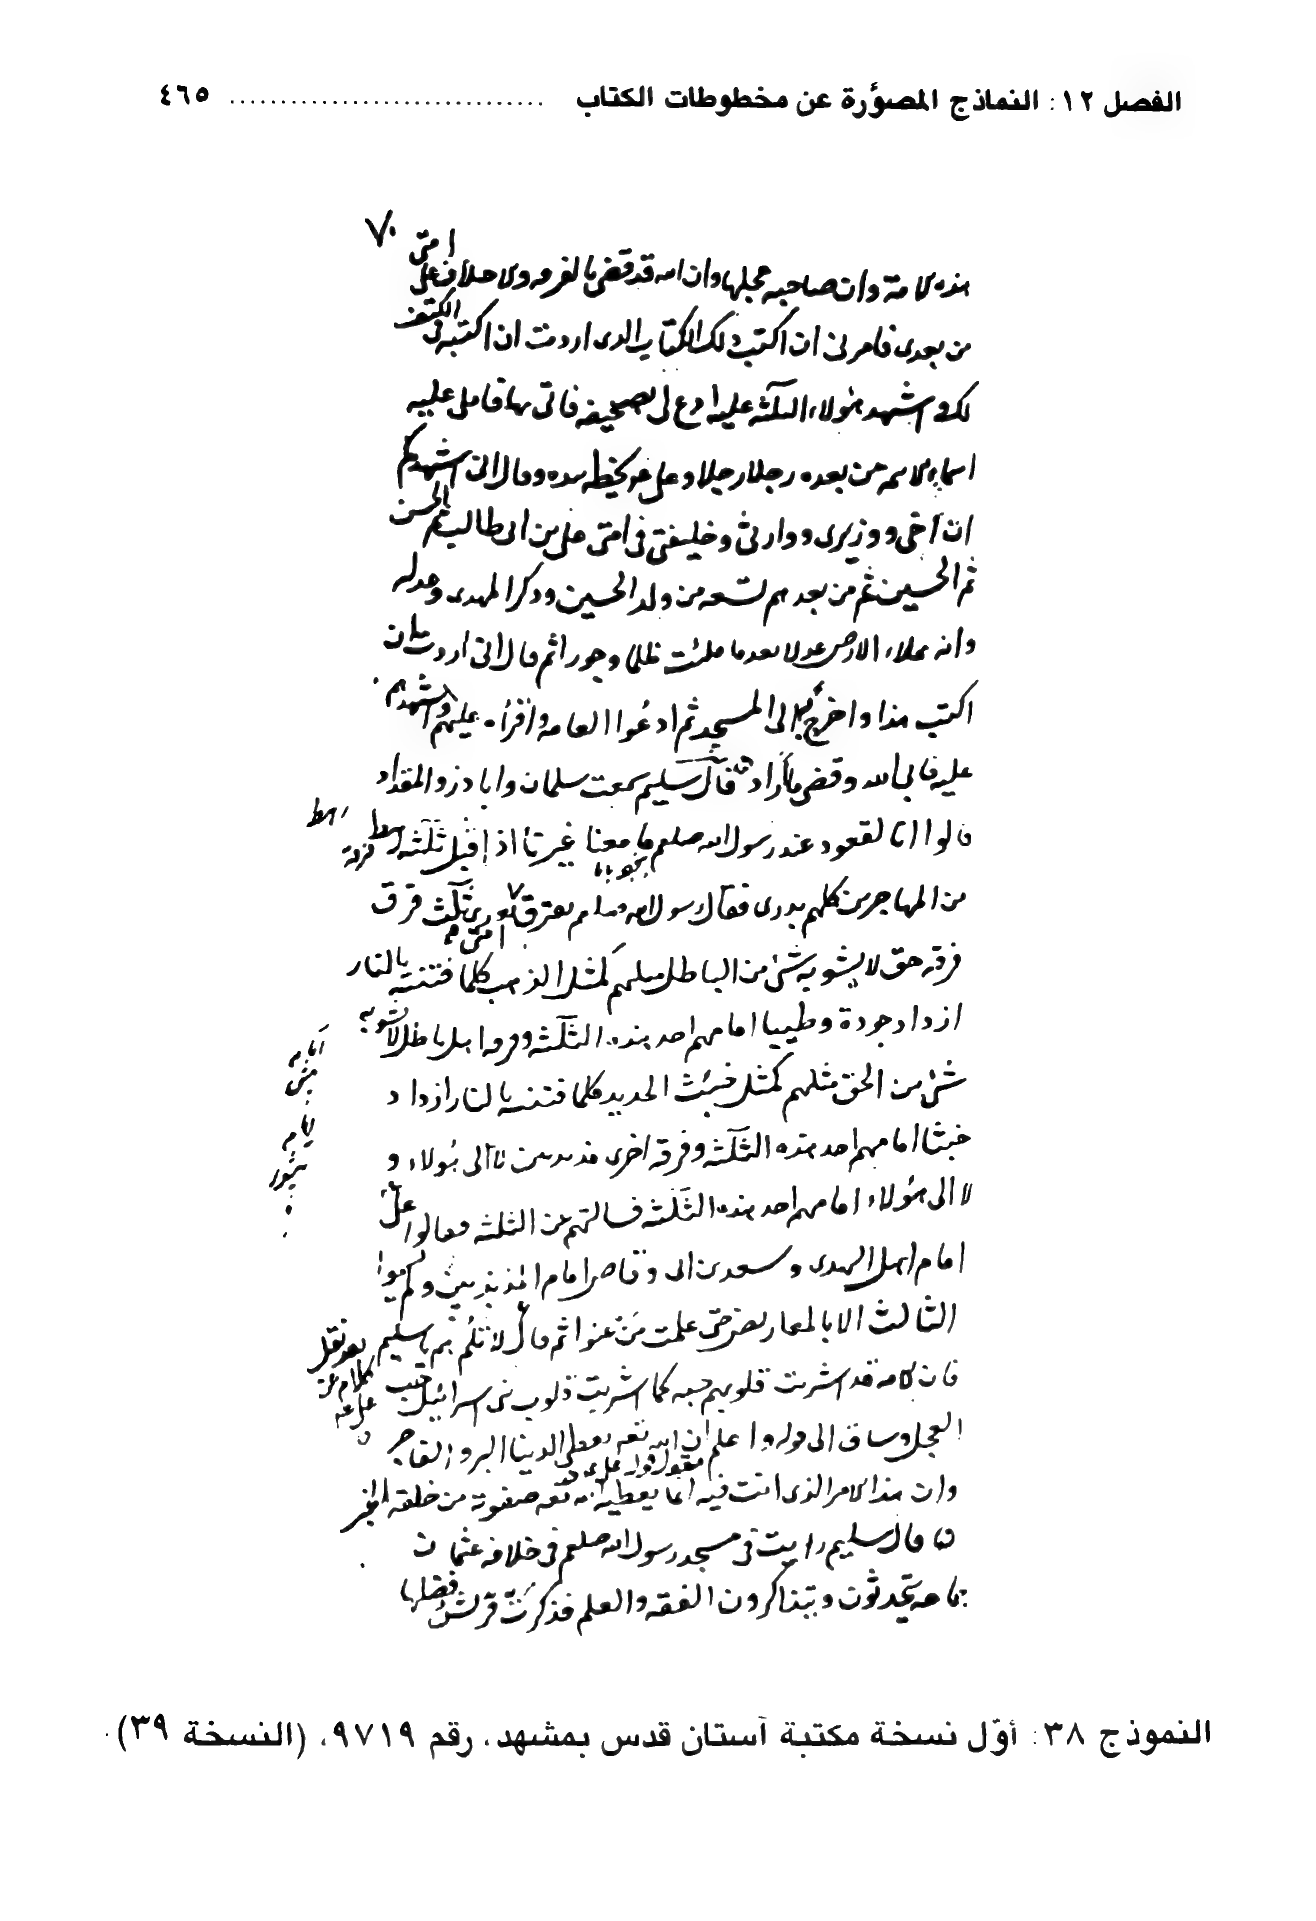 الفصل ١٢: النماذج المصوّرة عن مخطوطات الكتاب .............................. ٤٦٥
٧٠
هذه الامة وان صاحبه عجلها وان الله قد قضى بالفرقه والاختلاف على امتى
من بعدى فامرنى ان اكتب ذلك الكتاب الدى اردت ان اكتبه فى الكتف
لك و اشهد هولاء الثلثه عليه ادع لى بصحيفه فاتى بها فاملى عليه
اسماء الائمه من بعده رجلا رجلا وعلى يخطه بيده وقال انى اشهدكم
ان اخى و وزيرى و وارثى وخليفتى فى امتى على بن ابى طالب ثم الحسن
ثم الحسين ثم من بعدهم تسعه من ولد الحسين و ذكر المهدى وعدله
وانه يملاء الارض عدلا بعد ما ملئت ظلما وجورا ثم قال انى اردت ان
اكتب هذا واخرج به الى المسجد ثم ادعوا العامه واقرأه عليهم واشهدهم
عليه فابى الله وقضى ما اراد قال سليم سمعت سلمان وابا ذر والمقداد
قالوا انا لقعود عند رسول الله صلعم ما معنا غيرنا اذ اقبل ثلثه رهط
من المهاجرين كلهم بدرى فقال رسول الله تفترق امتى بعدى ثلث فرق
فرقه حق لا يشوبه شئ من الباطل مثلهم كمثل الذهب كلما فتنته بالنار
ازداد جودة وطيبا امامهم احد هذه الثلثه وفرقه اهل باطل لا يشوبه
شئ من الحق مثلهم كمثل خبث الحديد كلما فتنته بالنار ازداد
خبثا امامهم احد هذه الثلثه وفرقه اخرى مذبذبين لا الى هؤلاء و
لا الى هؤلاء امامهم احد هذه الثلثه فسالتهم عن الثلثه فقالوا على
امام اهل الهدى و سعد بن ابى وقاص امام المذبذبين و
الثالث الا بالمعاريض حتى علمت من عنوا ثم قال
فان الامه قد اشربت قلوبهم حبه كما اشربت قلوب بنى اسرائيل حب
العجل وساق الى قوله واعلم ان الله يعطى الدينا البر و الفاجر
وان هذا الامر الذى انت فيه انما يعطيه الله صفوته من خلقه
قال سليم رايت فى مسجد رسول الله صلعم فى خلافه عثمان
جماعه يتحدثون ويتذاكرون الفقه والعلم فذكرت قريش فضلها
النموذج ٣٨: أوّل نسخة مكتبة آستان قدس بمشهد، رقم ٩٧١٩، (النسخة ٣٩).